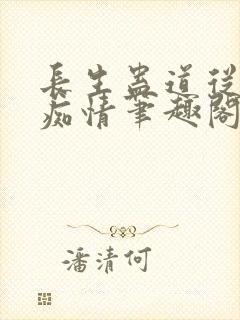 長生蛊道從
痴情筆趣閣
潘清何